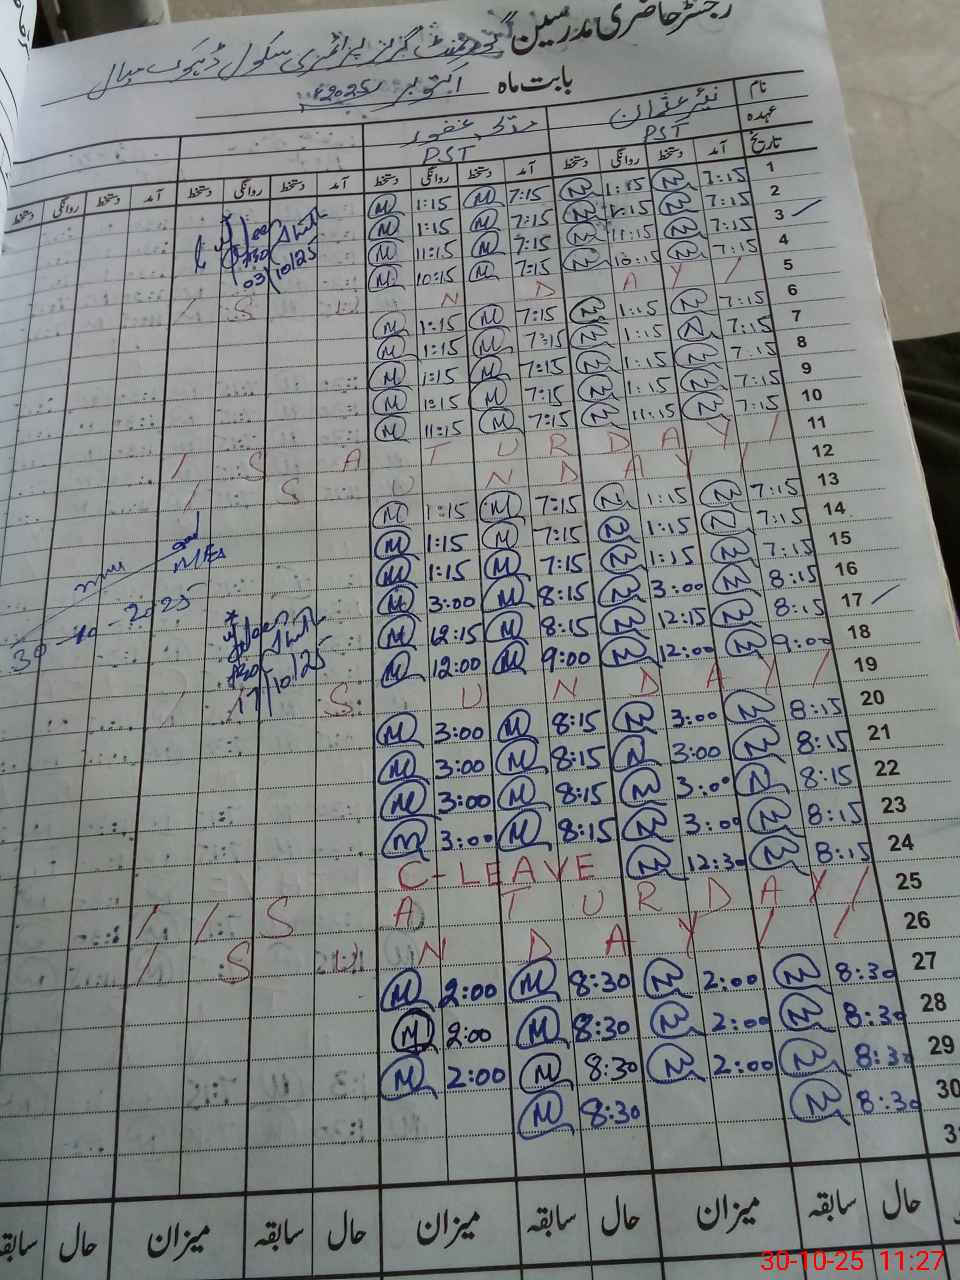 رجسٹر حاضری مدرسین گورنمنٹ گرلز پرائمری سکول
بابت ماہ اکتوبر 2025ء
نام
عہدہ PST PST
تاریخ آمد دستخط روانگی دستخط آمد دستخط روانگی دستخط آمد دستخط روانگی دستخط آمد دستخط روانگی دستخط
1 7:15 1:15 7:15 M 1:15 M
2 7:15 1:15 7:15 M 1:15 M
3 7:15 11:15 7:15 M 11:15 M
4 7:15 10:15 7:15 M 10:15 M
03/10/25
5 / S U N D A Y /
6 7:15 1:15 7:15 M 1:15 M
7 7:15 1:15 7:15 M 1:15 M
8 7:15 1:15 7:15 M 1:15 M
9 7:15 1:15 7:15 M 1:15 M
10 7:15 11:15 7:15 M 11:15 M
11 / S A T U R D A Y /
12 / S U N D A Y /
13 7:15 1:15 7:15 M 1:15 M
14 7:15 1:15 7:15 M 1:15 M
15 7:15 1:15 7:15 M 1:15 M
16 8:15 3:00 8:15 M 3:00 M
17 8:15 12:15 8:15 M 12:15 M
18 9:00 12:00 9:00 M 12:00 M
30-10-2025
17/10/25
19 / S U N D A Y /
20 8:15 3:00 8:15 M 3:00 M
21 8:15 3:00 8:15 M 3:00 M
22 8:15 3:00 8:15 M 3:00 M
23 8:15 3:00 8:15 M 3:00 M
24 8:15 12:30 C-LEAVE
25 / / S A T U R D A Y /
26 / S U N D A Y / /
27 8:30 2:00 8:30 M 2:00 M
28 8:30 2:00 8:30 M 2:00 M
29 8:30 2:00 8:30 M 2:00 M
30 8:30 8:30 M
31
حال سابقہ میزان حال سابقہ میزان حال سابقہ میزان حال سابقہ
30-10-25 11:27